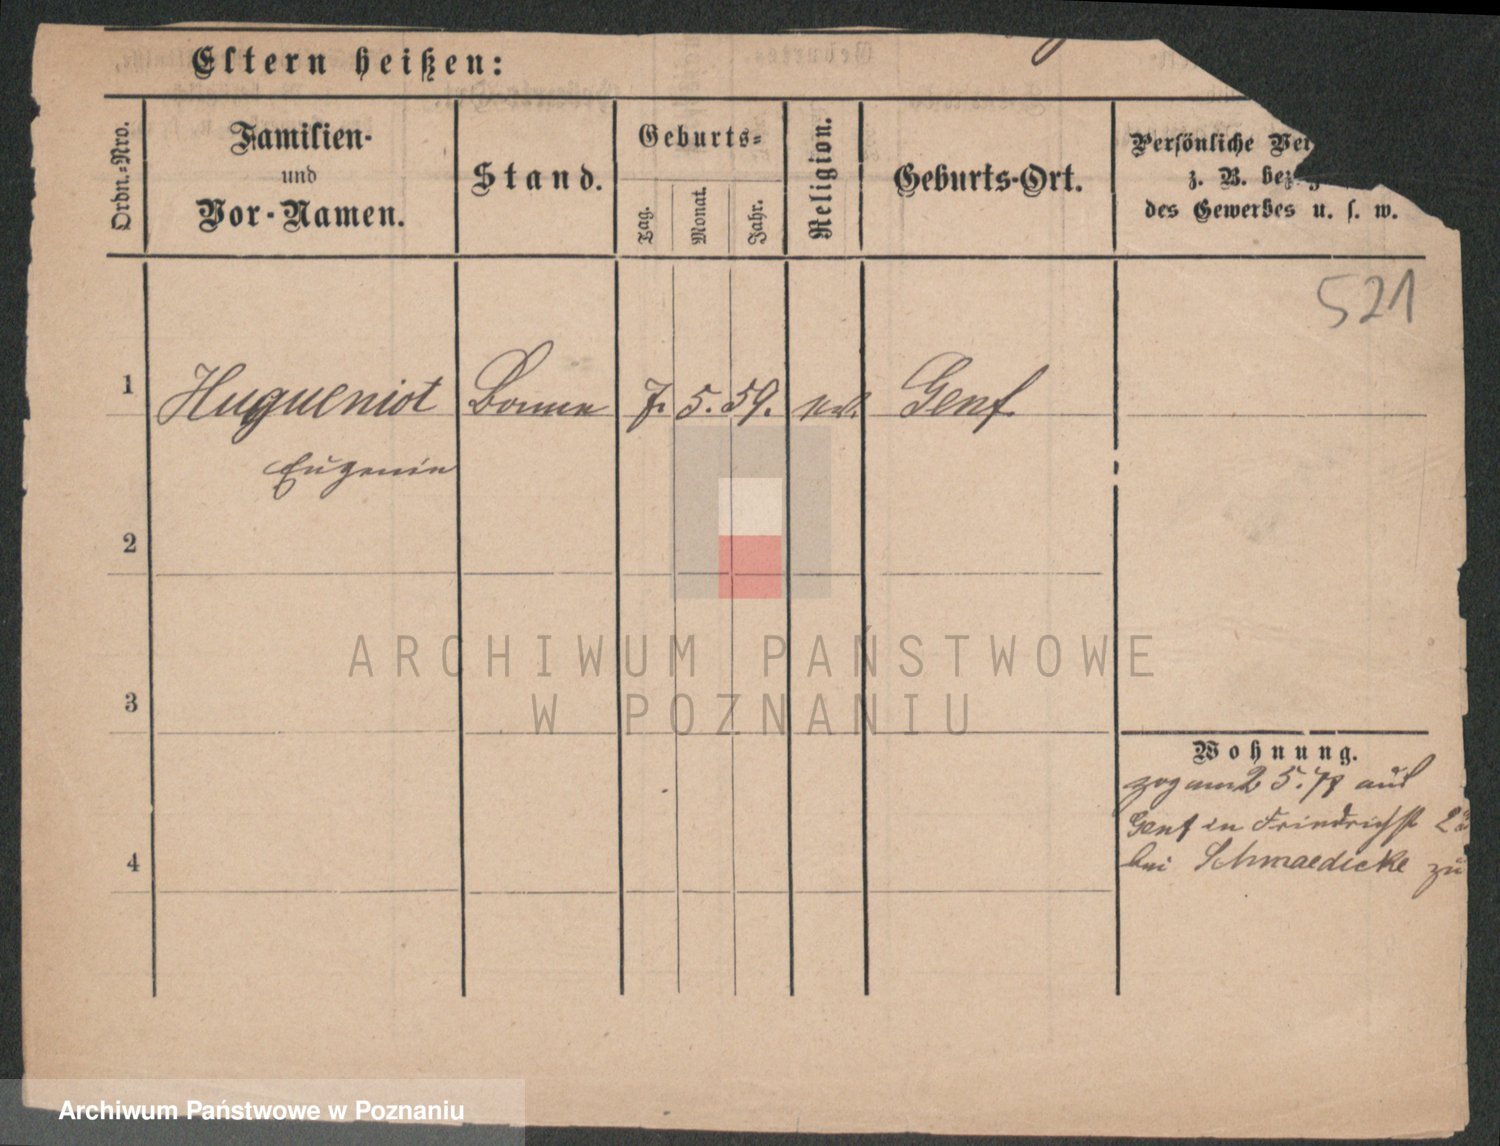 Eltern heißen:
Ordn.-Nro.
Familien-
und
Vor-Namen.
Stand.
Geburts-
Tag.
Monat.
Jahr.
Religion.
Geburts-Ort.
Persönliche Ver
z. B. bez g
des Gewerbes u. s. w.
521
1 Hugueniot Bonne 7. 5. 59. Genf
Eugenie
2
3
4
Wohnung.
zog am 2 5. 78 aus
Genf in Friedrichst
bei Schmaedicke zu
ARCHIWUM PAŃSTWOWE
W POZNANIU
Archiwum Państwowe w Poznaniu